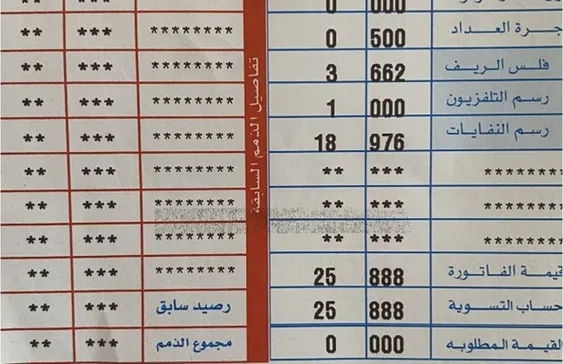 000 0
جرة العداد 500 0
فلس الريف 662 3
رسم التلفزيون 000 1
رسم النفايات 976 18
******** *** **
******** *** **
******** *** **
قيمة الفاتورة 888 25
حساب التسوية 888 25
القيمة المطلوبه 000 0
تفاصيل الذمم السابقة
*** **
******** *** **
******** *** **
******** *** **
******** *** **
******** *** **
******** *** **
******** *** **
******** *** **
رصيد سابق *** **
مجموع الذمم *** **